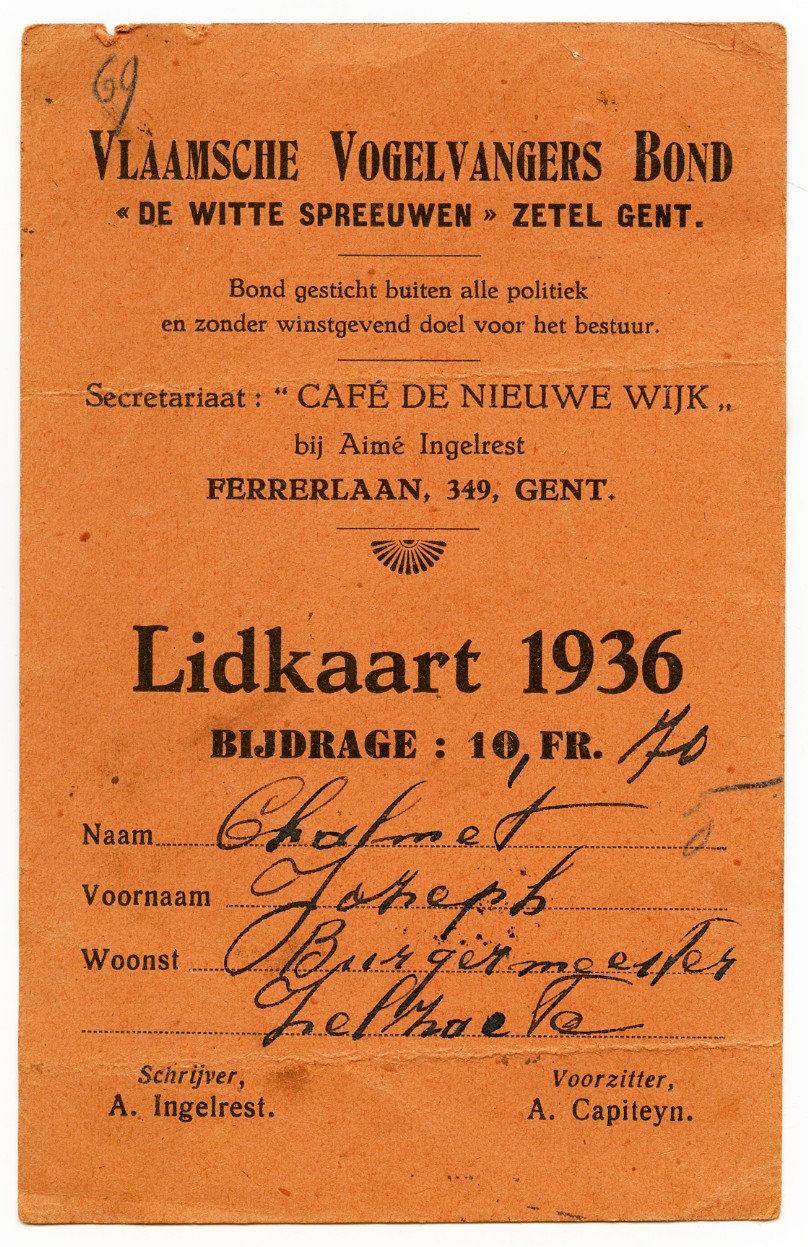 69
VLAAMSCHE VOGELVANGERS BOND
« DE WITTE SPREEUWEN » ZETEL GENT.
Bond gesticht buiten alle politiek
en zonder winstgevend doel voor het bestuur.
Secretariaat : “ CAFÉ DE NIEUWE WIJK „
bij Aimé Ingelrest
FERRERLAAN, 349, GENT.
Lidkaart 1936
BIJDRAGE : 10, FR. 70
Naam Chalmet
Voornaam Jozeph
Woonst Burgermeester
Zelzaete
Schrijver, Voorzitter,
A. Ingelrest. A. Capiteyn.